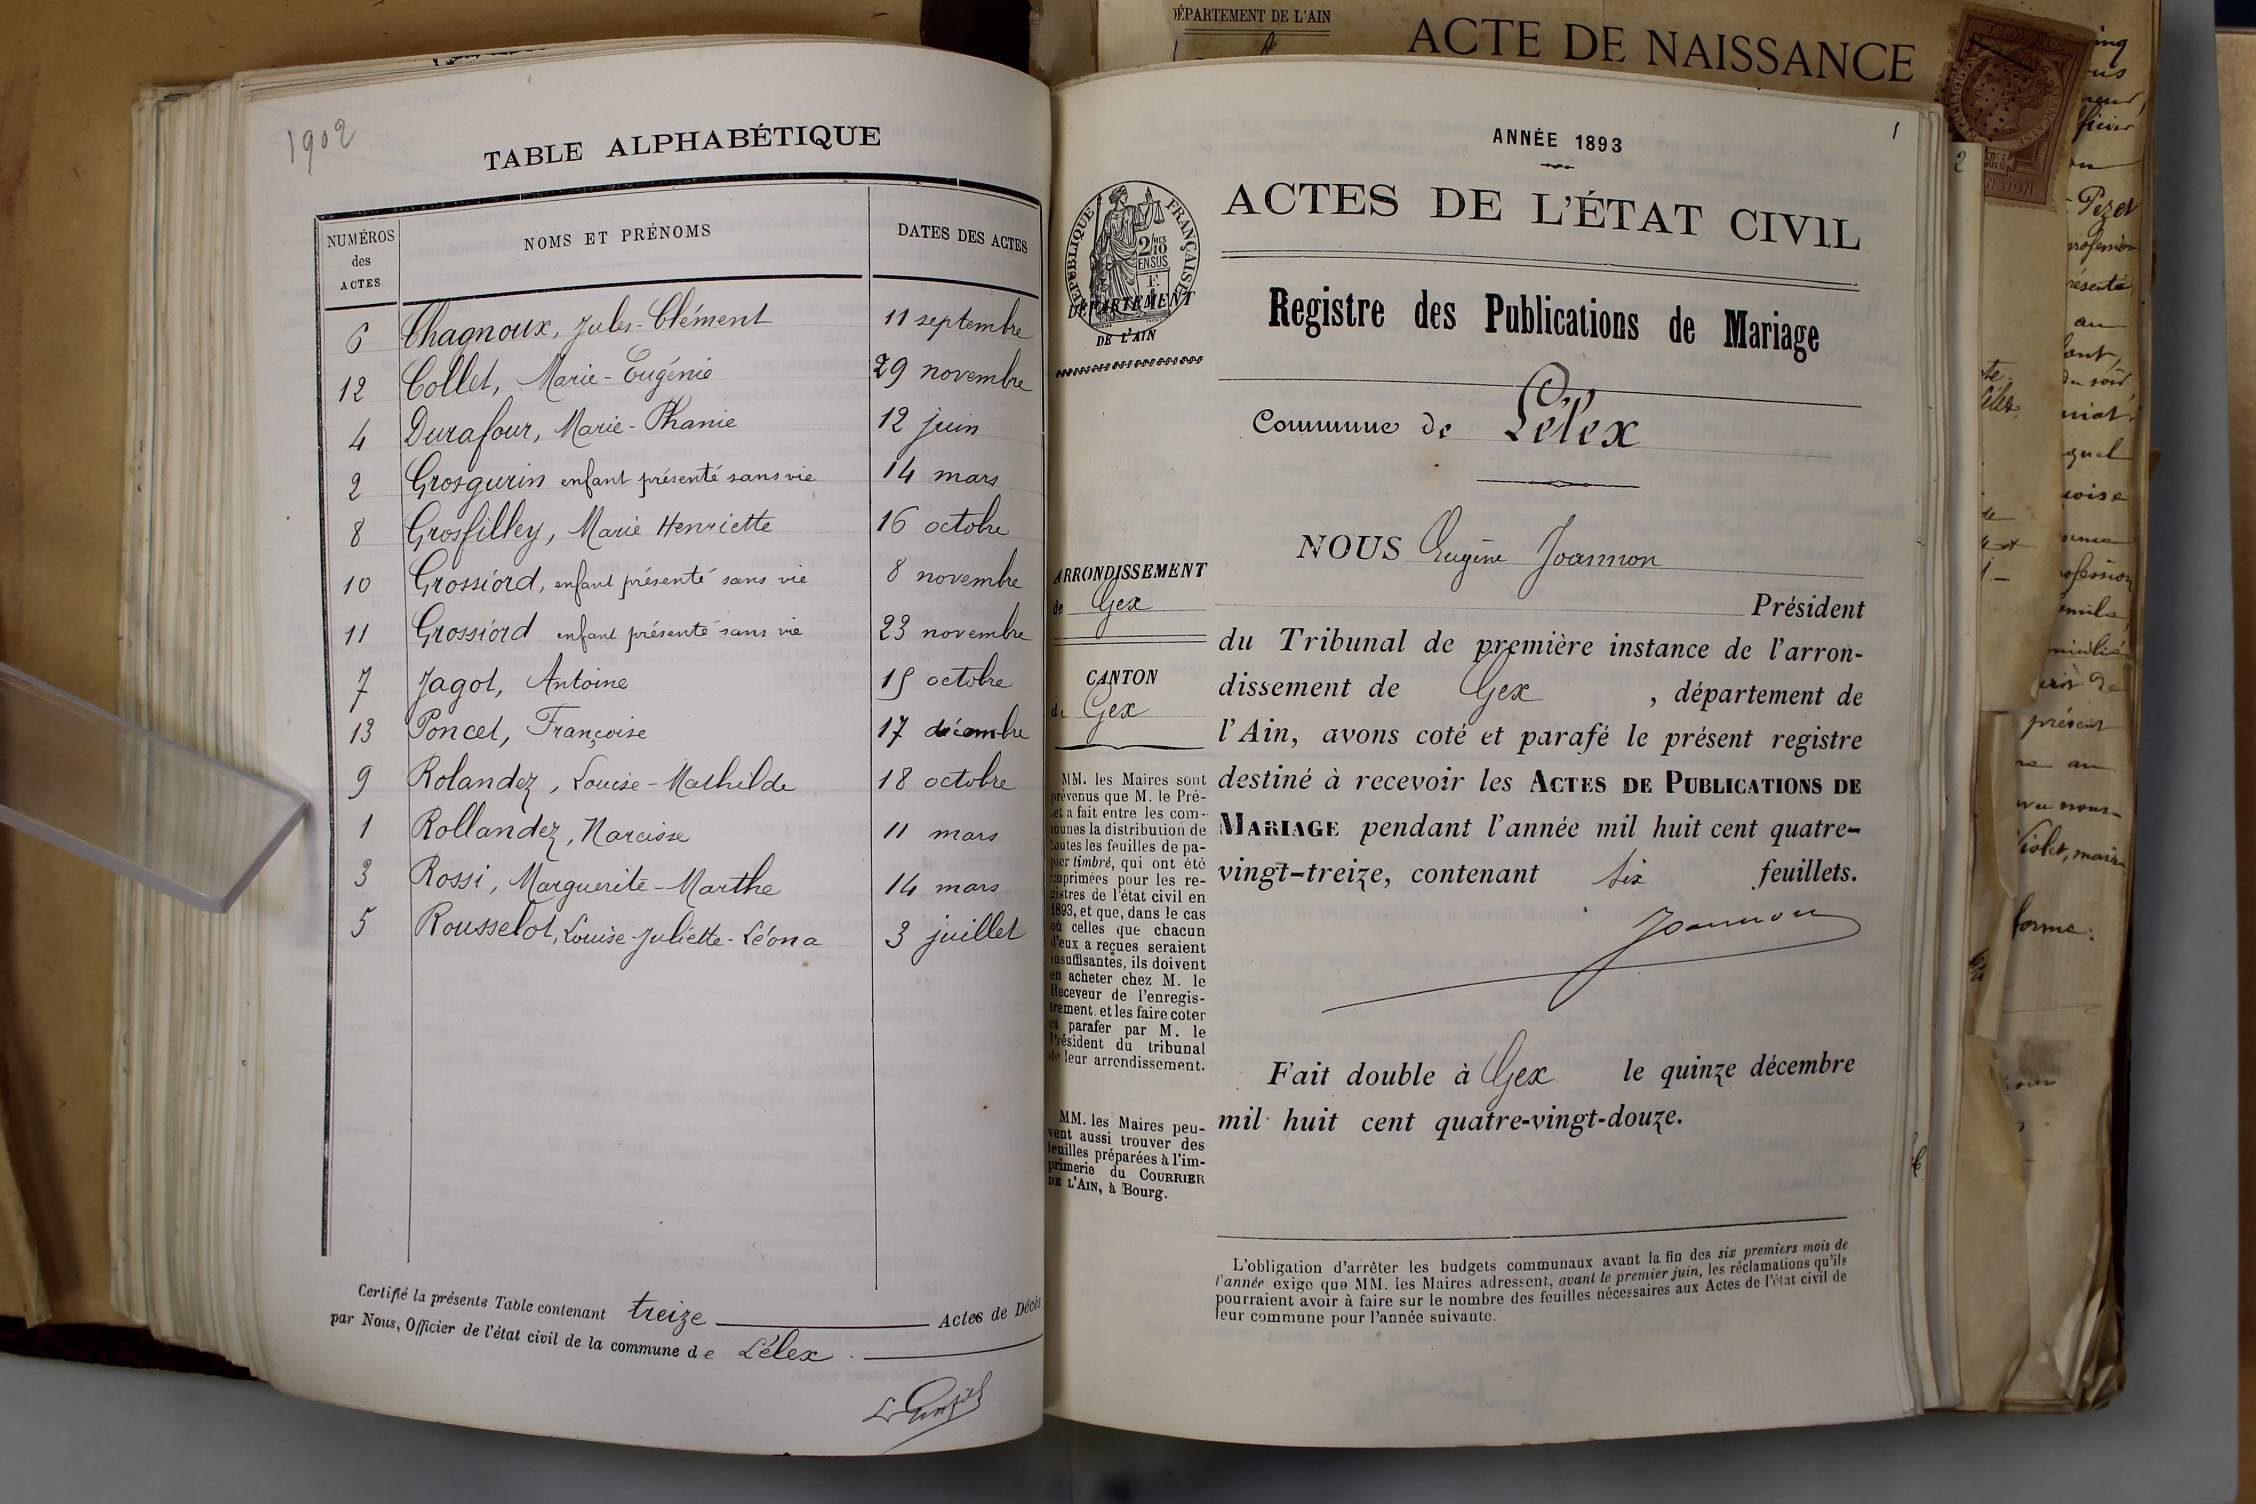 1902
TABLE ALPHABÉTIQUE
NUMÉROS des ACTES
NOMS ET PRÉNOMS
DATES DES ACTES
6 Chagnoux, Jules-Clément 11 septembre
12 Collet, Marie-Eugénie 29 novembre
4 Durafour, Marie-Phanie 12 juin
2 Grosgurin enfant présenté sans vie 14 mars
8 Grosfilley, Marie Henriette 16 octobre
10 Grossiord, enfant présenté sans vie 8 novembre
11 Grossiord enfant présenté sans vie 23 novembre
7 Jagot, Antoine 15 octobre
13 Poncet, Françoise 17 décembre
9 Rolandez, Louise-Mathilde 18 octobre
1 Rollandez, Narcisse 11 mars
3 Rossi, Marguerite-Marthe 14 mars
5 Rousselot, Louise-Juliette-Léona 3 juillet
Certifié la présente Table contenant treize Actes de Décès
par Nous, Officier de l'état civil de la commune de Lélex.
DÉPARTEMENT DE L'AIN
ACTE DE NAISSANCE
1
ANNÉE 1893
ACTES DE L'ÉTAT CIVIL
RÉPUBLIQUE FRANÇAISE
2/10 MES
EN SUS
DÉPARTEMENT
DE L'AIN
Registre des Publications de Mariage
Commune de Lélex
NOUS Eugène Joannon
Président
du Tribunal de première instance de l'arron-
dissement de Gex, département de
l'Ain, avons coté et parafé le présent registre
destiné à recevoir les ACTES DE PUBLICATIONS DE
MARIAGE pendant l'année mil huit cent quatre-
vingt-treize, contenant six feuillets.
Joannon
Fait double à Gex le quinze décembre
mil huit cent quatre-vingt-douze.
ARRONDISSEMENT
de Gex
CANTON
de Gex
MM. les Maires sont
prévenus que M. le Pré-
fet a fait entre les com-
munes la distribution de
toutes les feuilles de pa-
pier timbré, qui ont été
imprimées pour les re-
gistres de l'état civil en
1893, et que, dans le cas
où celles que chacun
d'eux a reçues seraient
insuffisantes, ils doivent
en acheter chez M. le
Receveur de l'enregis-
trement et les faire coter
et parafer par M. le
Président du tribunal
de leur arrondissement.
MM. les Maires peu-
vent aussi trouver des
feuilles préparées à l'im-
primerie du COURRIER
DE L'AIN, à Bourg.
L'obligation d'arrêter les budgets communaux avant la fin des six premiers mois de
l'année exige que MM. les Maires adressent, avant le premier juin, les réclamations qu'ils
pourraient avoir à faire sur le nombre des feuilles nécessaires aux Actes de l'état civil de
leur commune pour l'année suivante.
2
Pezet
présent
Violet, maire
forme: